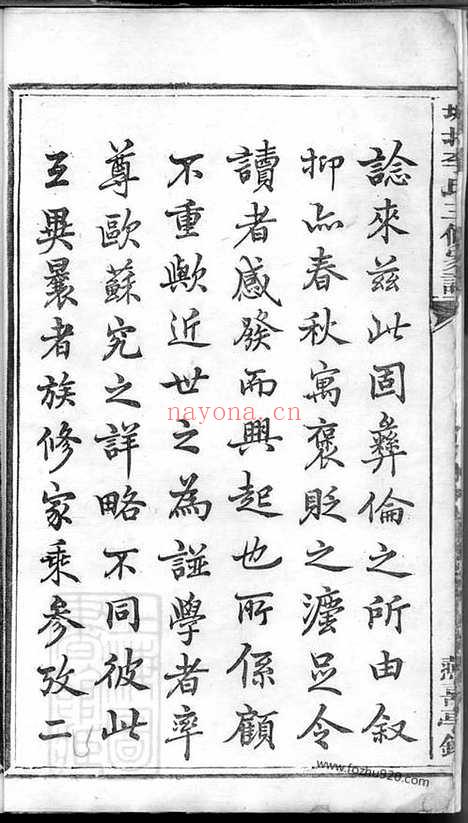 諗來茲此固彝倫之所由叙
抑亦春秋寓褒貶之灋足令
讀者感發而興起也所係顧
不重歟近世之為譜學者率
尊歐蘇究之詳略不同彼此
互異曩者族修家乘參攷二
李氏三修家譜
nayona.cn
www.fozhu920.com